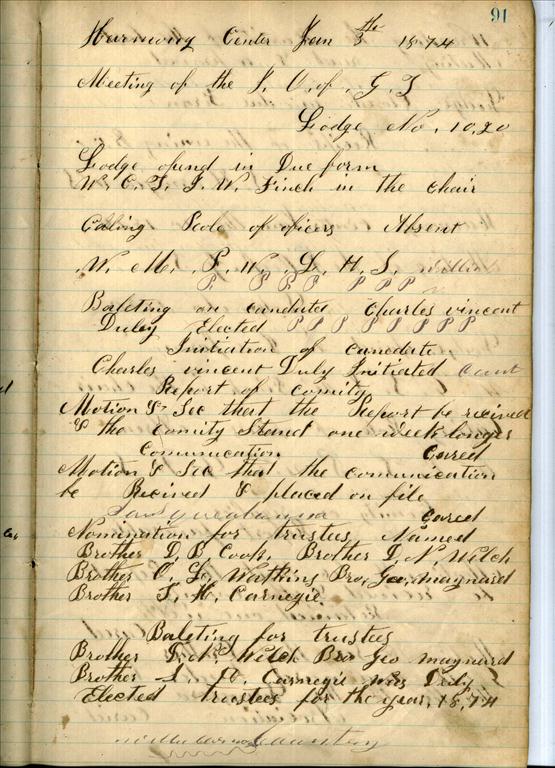 91
Harmony Center Jan 3th 1874
Meeting of the I, O, of, G, T
Lodge No, 10,20
Lodge opend in Due form
W. C. T, J. W. Finch in the chair
Caling Role of oficers Absent
W, M, P, W, L, H, S,
P P P P P P P
Baleting on canduted Charles vincent
Duley Elected P P P P P P P P
Initiation of canedate
Charles vincent Duly Initiated
Report of comity
Motion & Sec that the Report be reicived
& the comity Stand one week longer
Comunication Cared
Motion & Sec that the comunication
be Recived & placed on file
Cared
Nomination for trustees Named
Brother D. B Cook, Brother D, N, Welch
Brother O, L, Watkins Bro, Geo, maynard
Brother S. H. Carnegie.
Baleting for trustees
Brother D. N. Welch Bro Geo maynard
Brother S. H. Carnegie was Duly
Elected trustees for the year, 18,74